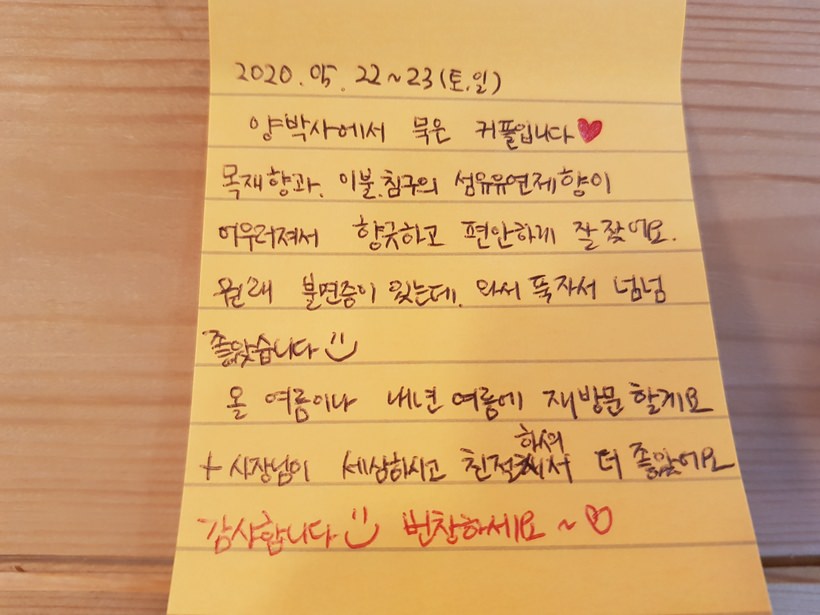 2020. 05. 22~23(토.일)
양박사에서 묵은 커플입니다♥
목재향과, 이불.침구의 섬유유연제향이
어우러져서 향긋하고 편안하게 잘 잤어요.
원래 불면증이 있는데, 와서 푹자서 넘넘
좋았습니다
올 여름이나 내년 여름에 재방문 할게요
하셔
+ 사장님이 세심하시고 친절 서 더 좋았어요
감사합니다 번창하세요 ~♡